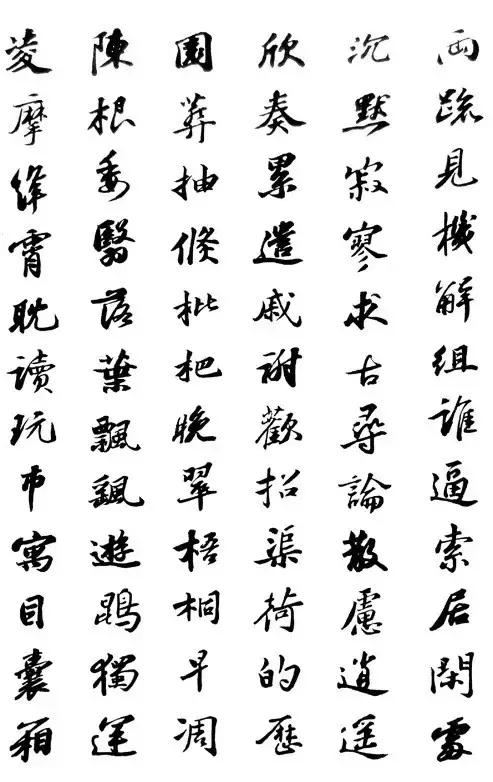 両疏見機解組誰逼索居閑處
沉默寂寥求古尋論散慮逍遥
欣奏累遣戚謝歡招渠荷的歷
園莽抽條枇杷晚翠梧桐早凋
陳根委翳落葉飄颻遊鵾獨運
凌摩絳霄耽讀玩市寓目囊箱